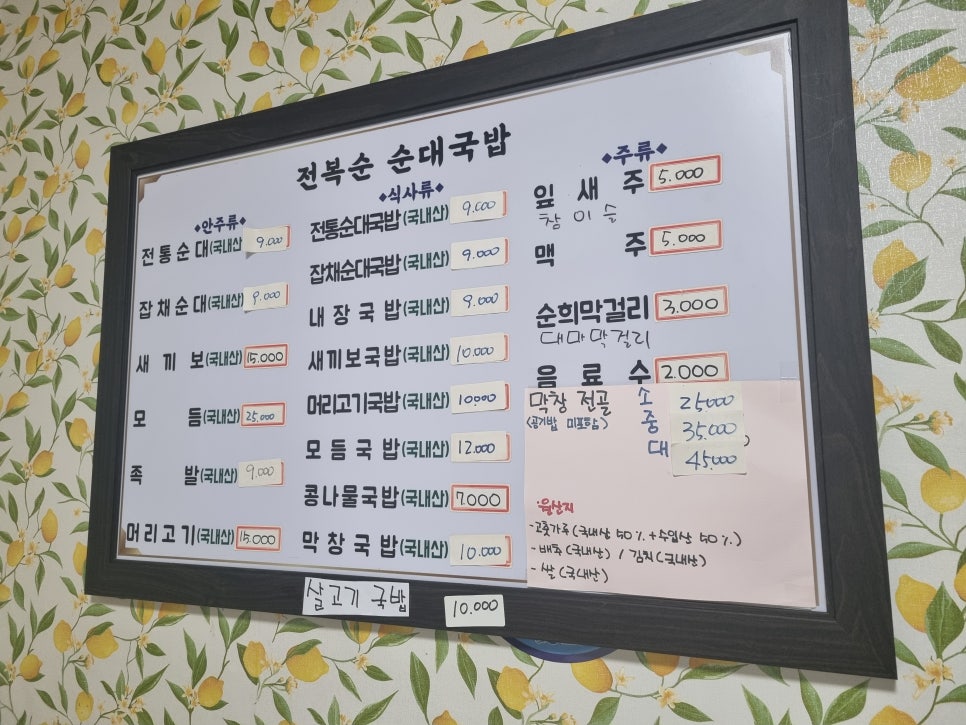 전복순 순대국밥
◆안주류◆
전통순대(국내산) 9.000
잡채순대(국내산) 9.000
새끼보(국내산) 15.000
모듬(국내산) 25.000
족발(국내산) 9.000
머리고기(국내산) 15.000
◆식사류◆
전통순대국밥(국내산) 9.000
잡채순대국밥(국내산) 9.000
내장국밥(국내산) 9.000
새끼보국밥(국내산) 10.000
머리고기국밥(국내산) 10.000
모듬국밥(국내산) 12.000
콩나물국밥(국내산) 7.000
막창국밥(국내산) 10.000
살고기 국밥 10.000
◆주류◆
잎새주 5.000
참이슬
맥주 5.000
순희막걸리 3.000
대마막걸리
음료수 2.000
막창 전골 소 25.000
(공기밥 미포함) 중 35.000
대 45.000
·원산지
-고춧가루(국내산 50% + 수입산 50%)
-배추(국내산) / 김치(국내산)
-쌀(국내산)